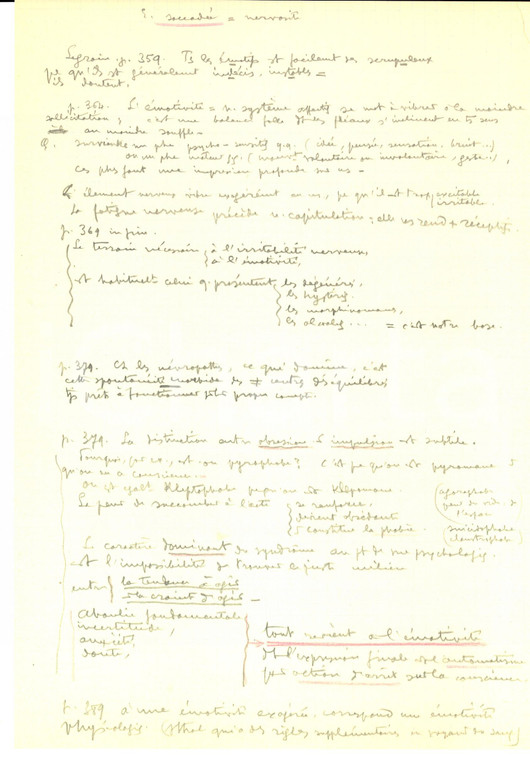 E. saccadée = nervosité
Legrain p. 359. Ts les émotifs st facilemt des scrupuleux
pc qu'ils st généralemt indécis. instables =
ils doutent.
p. 364. L'émotivité = n. système affectif se met à vibrer à la moindre
sollicitation; c'est une balance folle dt les fléaux s'inclinent en ts sens
au moindre souffle -
survienne un phe psycho-sensitif q.q. (idée, pensée, sensation, bruit..)
ou un phe moteur (mouvt volontaire ou involontaire, geste..),
ces phes font une impression profonde sur ns -
L'élément nerveux vibre exagérémt en ns, pc qu'il est trop excitable
irritable.
La fatigue nerveuse précède n. capitulation; elle ns rend + réceptifs.
p. 369 in fine.
Le terrain nécessaire à l'irritabilité nerveuse,
à l'émotivité,
est habituellt celui q. présentent les dégénérés,
les hystériq.
les morphinomanes,
les alcooliq... = c'est notre base.
p. 379. Ch les névropathes, ce qui domine, c'est
cette spontanéité morbide des ≠ centres déséquilibrés
tjs prêts à fonctionner pr leur propre compte.
p. 379. La distinction entre obsession & impulsion est subtile.
Pourquoi, par ex., est-on pyrophobe? c'est pc qu'on est pyromane &
qu'on en a conscience..
On est égalt kleptophobe pc qu'on est kleptomane.
La peur de succomber à l'acte se renforce,
devient obsédante
& constitue la phobie.
(agoraphobe
peur du vide, de
l'espace
(suicidophobe
claustrophobe)
Le caractère dominant du syndrome au pt de vue psychologiq.
est l'impossibilité de trouver le juste milieu
entre la tendance à agir
& la crainte d'agir -
Aboulie fondamentale
incertitude,
anxiété,
doute,
tout revient à l'émotivité
dt l'expression finale est l'automatisme
par action d'arrêt sur la conscience.
p. 389 à une émotivité exagérée correspond une émotivité
physiologiq.